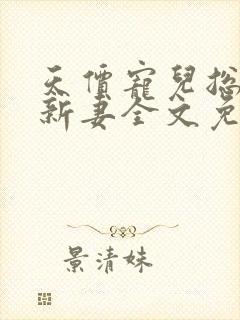 天價寵兒總
新妻全文免
景清妹